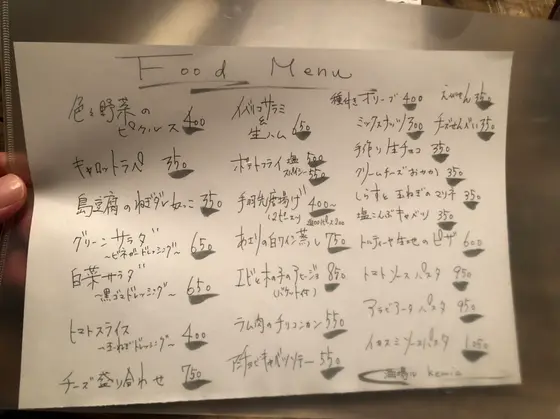 Food Menu
色々野菜の
ピクルス 400
キャロットラペ 350
島豆腐のねぎダレ奴っこ 350
グリーンサラダ 650
〜ビネガードレッシング〜
白菜サラダ 650
〜黒ゴマドレッシング〜
トマトスライス 400
〜玉ねぎドレッシング〜
チーズ盛り合わせ 750
イベリコサラミ
&
生ハム 650
ポテトフライ 塩 500
スパイシー 550
手羽先唐揚げ 400〜
あさりの白ワイン蒸し 750
エビと木の子のアヒージョ 850
(バケット付)
ラム肉のチリコンカン 550
キャベツソテー 550
種付きオリーブ 400
ミックスナッツ 300
手作り生チョコ 350
クリームチーズおかか 350
しらすと玉ねぎのマリネ 350
塩こんぶキャベツ 350
トルティーヤ生地のピザ 600
トマトソースパスタ 950
アラビアータパスタ 950
パスタ 1050
えびせん 350
チーズせんべい 350
酒場 kemix